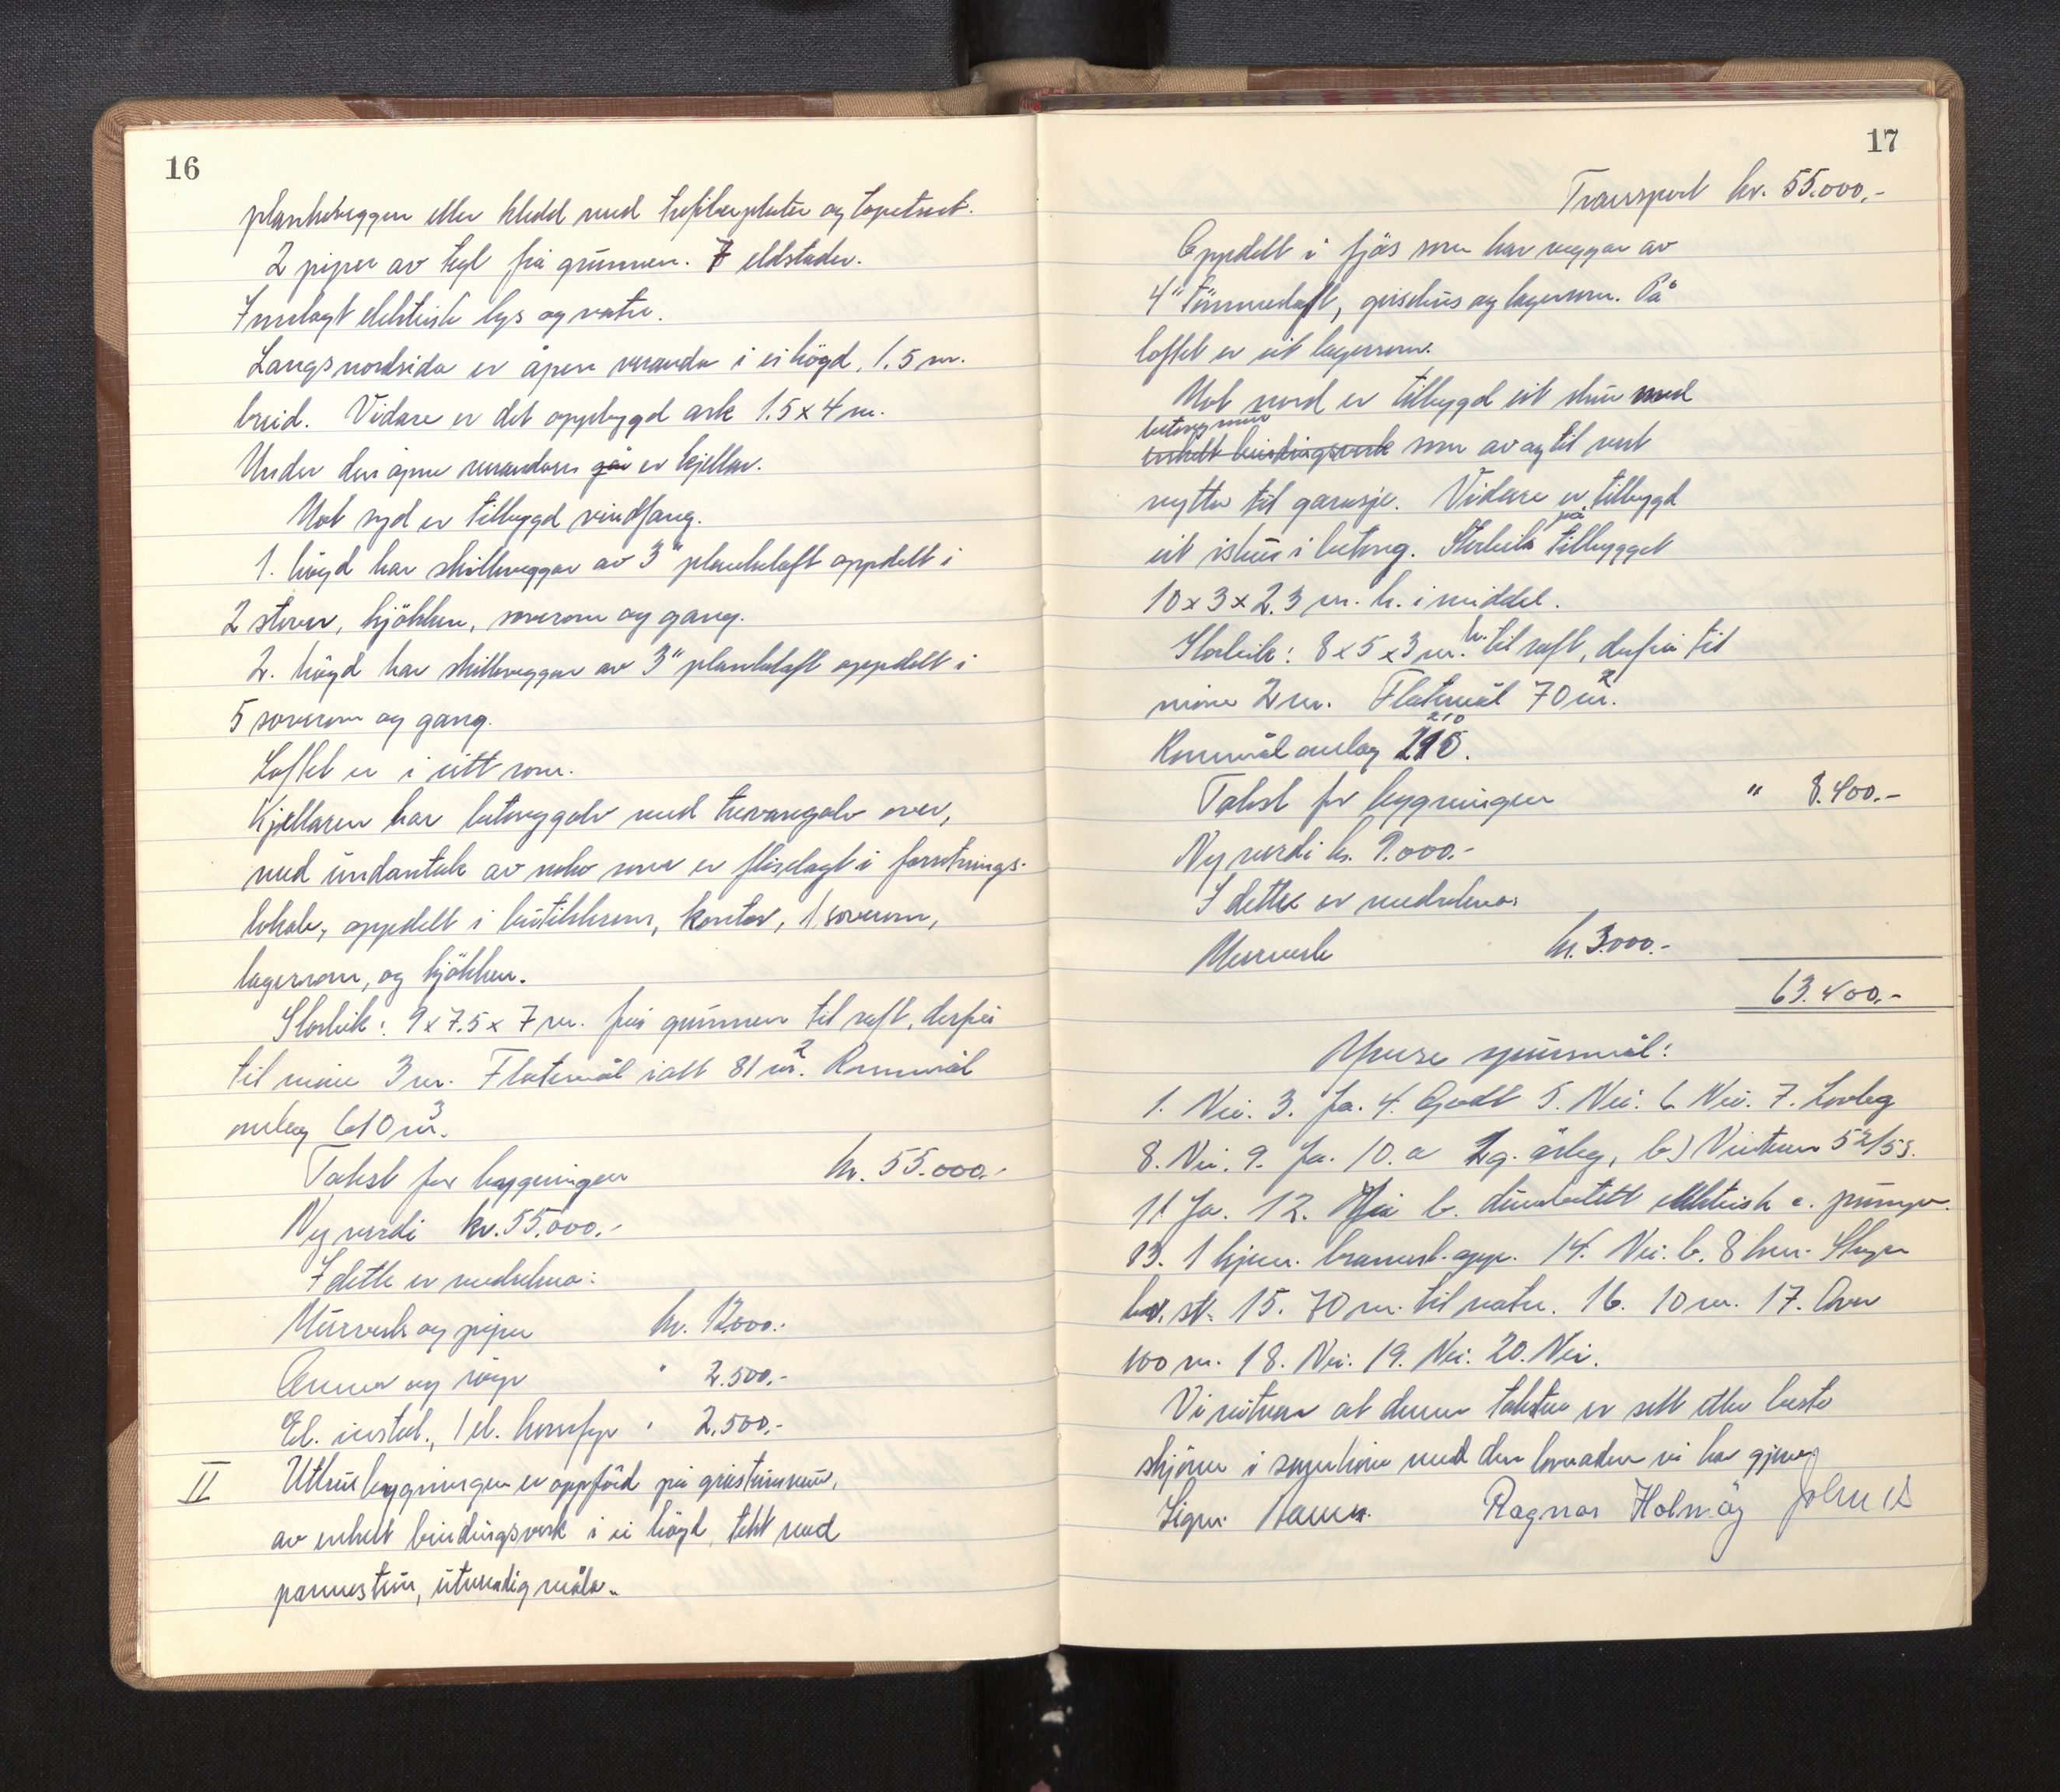 16
plankeveggen eller kledd med trefiberplater og tapetsert.
2 piper av tegl frå grunnen. 7 eldstader.
Innlagt elektrisk lys og vatn.
Langs nordsida er åpen veranda i ei högd, 1.5 m.
breid. Vidare er det oppbygd ark 1.5 x 4 m.
Under den åpne verandaen går er kjellar.
Mot syd er tilbygd vindfang.
1. högd har skilleveggar av 3" plankelaft oppdelt i
2 stover, kjökken, soverom og gang.
2. högd har skilleveggar av 3" plankelaft oppdelt i
5 soverom og gang.
Loftet er i eitt rom.
Kjellaren har betonggolv med trevaregolv over,
med undantak av noko som er flislagt i forretnings-
lokale, oppdelt i butikkrom, kontor, 1 soverom,
lagerrom, og kjökken.
Storleik: 9 x 7.5 x 7 m. frå grunnen til raft, derfrå
til möne 3 m. Flatemål ialt 81 m². Rommål
omlag 610 m³.
Takst for bygningen kr. 55.000.-
Ny verdi kr. 55.000.-
I dette er medrekna:
Murverk og piper kr. 12.000.-
Omner og " 2.500.-
El. instal., 1 el. komfyr " 2.500.-
II Uthusbygningen er oppförd på gråsteinsmur,
av enkelt bindingsverk i ei högd, tekt med
pannestein, utvendig måla.
17
Transport kr. 55.000,-
Oppdelt i fjös som har veggar av
4" tömmerlaft, grisehus og lagerrom. På
loftet er eit lagerrom.
Mot nord er tilbygd eit skur med
betongmur
enkelt bindingsverk som av og til vert
nytta til garasje. Vidare er tilbygd
eit ishus i betong. Storleik på tilbygget
10 x 3 x 2.3 m. h. i middel.
Storleik: 8 x 5 x 3 m. h. til raft, derfrå til
möne 2 m. Flatemål 70 m².
210
Rommål omlag 215.
Takst for bygningen " 8.400.-
Ny verdi kr. 9.000.-
I dette er medrekna:
Murverk kr. 3000.-
63.400.-
Ymse spursmål:
1. Nei. 3. Ja. 4. Godt 5. Nei. 6. Nei. 7. Lovleg
8. Nei. 9. Ja. 10. a 2 g. årleg, b) Vinteren 52/53.
11. Ja. 12. Nei b. elektrisk c. pumpe.
13. 1 kjem. brannsl. app. 14. Nei. b. 8 km.
15. 70 m. til vatn. 16. 10 m. 17. Over
100 m. 18. Nei. 19. Nei. 20. Nei.
Vi vitner at denne taksten er sett etter beste
skjönn i samhöve med den lovnaden vi har gjeve
Ragnar Holmöy